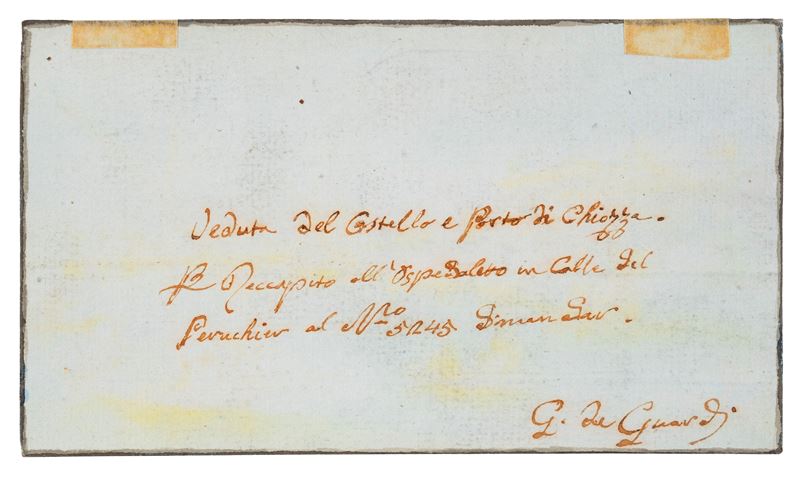 Veduta del Castello e Porto di Chiozza.
Pr Reccapito all'Ospedaleto in Calle del
Peruchier al Nro 5245 Dimandar.
G. de Guardi